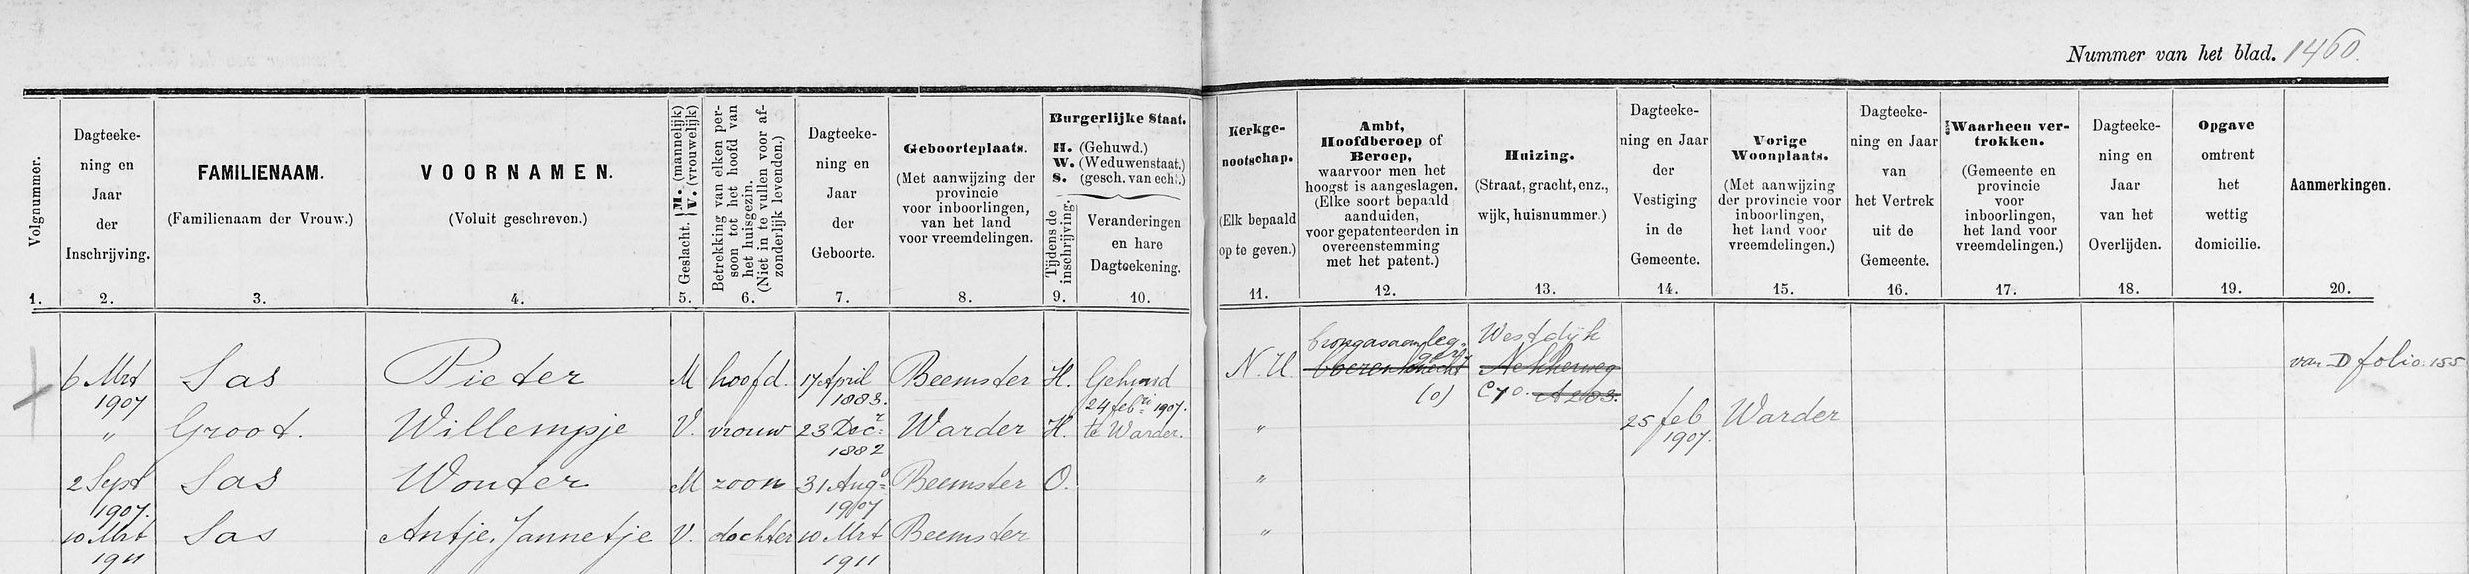 Nummer van het blad. 1460.
Volgnummer.
1.
Dagteeke-
ning en
Jaar
der
Inschrijving.
2.
FAMILIENAAM.
(Familienaam der Vrouw.)
3.
VOORNAMEN.
(Voluit geschreven.)
4.
Geslacht. M. (mannelijk) V. (vrouwelijk)
5.
Betrekking van elken per-
soon tot het hoofd van
het huisgezin.
(Niet in te vullen voor af-
zonderlijk levenden.)
6.
Dagteeke-
ning en
Jaar
der
Geboorte.
7.
Geboorteplaats.
(Met aanwijzing der
provincie
voor inboorlingen,
van het land
voor vreemdelingen.
8.
Burgerlijke Staat.
H. (Gehuwd.)
W. (Weduwenstaat.)
S. (gesch. van echt.)
Tijdens de
inschrijving.
9.
Veranderingen
en hare
Dagteekening.
10.
Kerkge-
nootschap.
(Elk bepaald
op te geven.)
11.
Ambt,
Hoofdberoep of
Beroep,
waarvoor men het
hoogst is aangeslagen.
(Elke soort bepaald
aanduiden,
voor gepatenteerden in
overeenstemming
met het patent.)
12.
Huizing.
(Straat, gracht, enz.,
wijk, huisnummer.)
13.
Dagteeke-
ning en Jaar
der
Vestiging
in de
Gemeente.
14.
Vorige
Woonplaats.
(Met aanwijzing
der provincie voor
inboorlingen,
het land voor
vreemdelingen.)
15.
Dagteeke-
ning en Jaar
van
het Vertrek
uit de
Gemeente.
16.
Waarheen ver-
trokken.
(Gemeente en
provincie
voor
inboorlingen,
het land voor
vreemdelingen.)
17.
Dagteeke-
ning en
Jaar
van het
Overlijden.
18.
Opgave
omtrent
het
wettig
domicilie.
19.
Aanmerkingen.
20.
6 Mrt 1907 Sas Pieter M hoofd. 17 April 1883. Beemster H. Gehuwd 24 febri 1907. te Warder. N.H. brongasaanleg-
ger
boerenknecht
(o)
Westdijk
Nekkerweg
C70. A203.
van D folio. 155
" Groot. Willempje V. vrouw 23 Decr 1882 Warder H. " 25 feb 1907. Warder
2 Sept 1907. Sas Wouter M zoon 31 Augo 1907 Beemster O. "
10 Mrt 1911 Sas Antje, Jannetje V. dochter 10 Mrt 1911 Beemster "